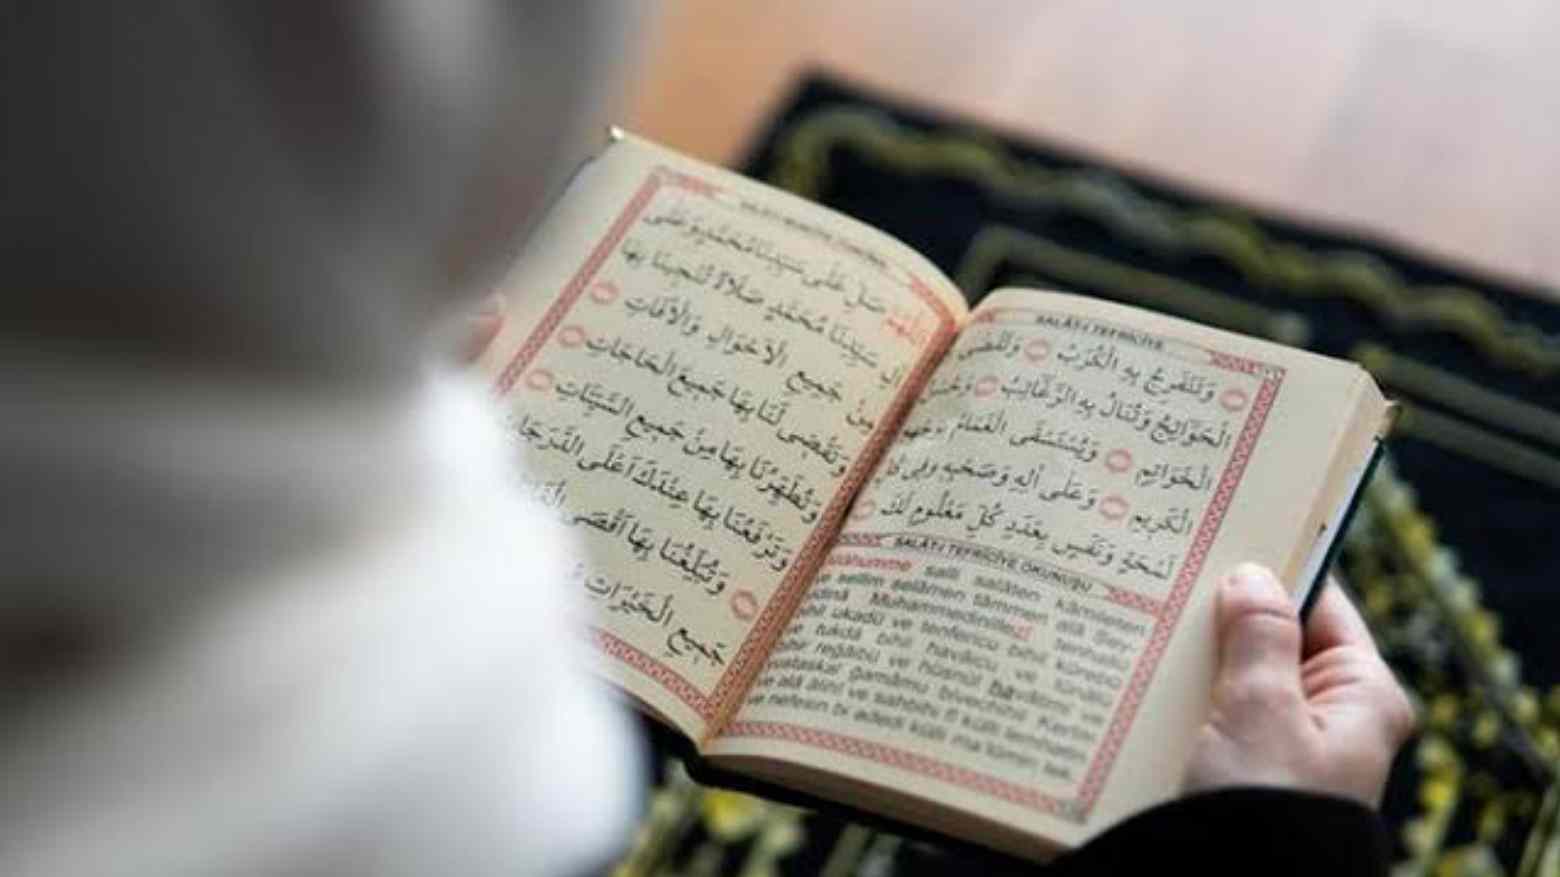 اَللّٰهُمَّ صَلِّ عَلٰى سَيِّدِنَا مُحَمَّدٍ وَعَلٰى
اٰلِ سَيِّدِنَا مُحَمَّدٍ صَلَاةً تُنْجِينَا بِهَا
مِنْ جَمِيعِ الْاَحْوَالِ وَالْاٰفَاتِ
وَتَقْضِى لَنَا بِهَا جَمِيعَ الْحَاجَاتِ
وَتُطَهِّرُنَا بِهَا مِنْ جَمِيعِ السَّيِّئَاتِ
وَتَرْفَعُنَا بِهَا عِنْدَكَ اَعْلَى الدَّرَجَاتِ
وَتُبَلِّغُنَا بِهَا اَقْصَى
جَمِيعِ الْخَيْرَاتِ
SALÂT-I TEFRİCİYE
وَتَنْفَرِجُ بِهِ الْكُرَبُ وَتُقْضٰى
الْحَوَائِجُ وَتُنَالُ بِهِ الرَّغَائِبُ وَحُسْنُ
الْخَوَاتِمِ وَيُسْتَسْقَى الْغَمَامُ بِوَجْهِهِ
الْكَرِيمِ وَعَلٰى اٰلِهِ وَصَحْبِهِ فِى كُلِّ
لَمْحَةٍ وَنَفَسٍ بِعَدَدِ كُلِّ مَعْلُومٍ لَكَ
SALÂT-I TEFRİCİYE OKUNUŞU
salli salâten kâmileten
ve sellim selâmen tâmmen alâ
Muhammedinillezî
ve tenfericu bihil kürebu
ve tukdâ bihil havâicu ve tunâlu
bihir reğâibu ve hüsnül havâtimi ve
yusteskal ğamâmu bivechihil Kerîmi
ve alâ âlihî ve sahbihi fî külli lemhatin
ve nefesin bi adedi külli ma'lûmin lek.